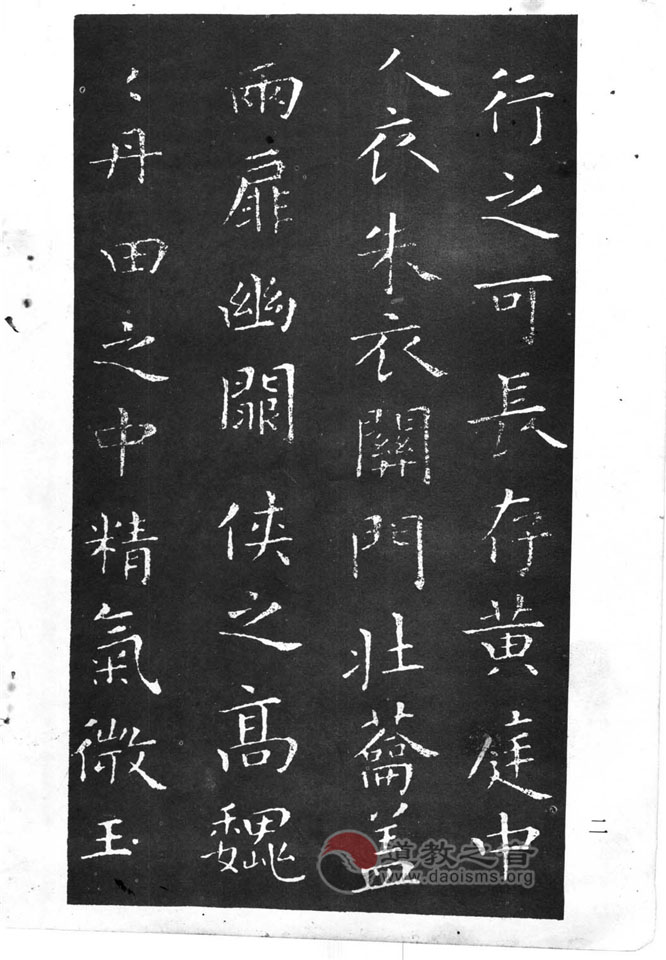 行之可長存黄庭中
人衣朱衣關門壯蘥盖
兩扉幽闗俠之髙魏
〻丹田之中精氣微玉
二
道教之音
www.daoisms.org